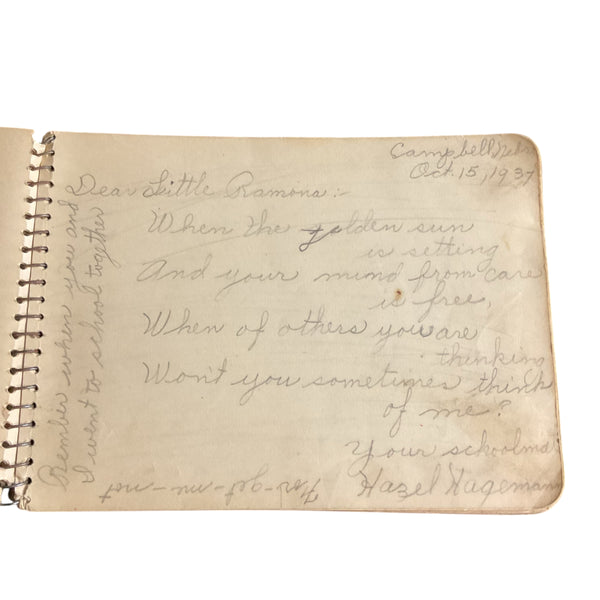 Campbell, Nebr
Oct. 15, 1937
Dear Little Ramona:-
When the golden sun
is setting
And your mind from care
is free,
When of others you are
thinking
Won't you sometimes think
of me?
Your schoolmat
Hazel Hagemann
For-get-me-not
Rember when you and
I went to school together